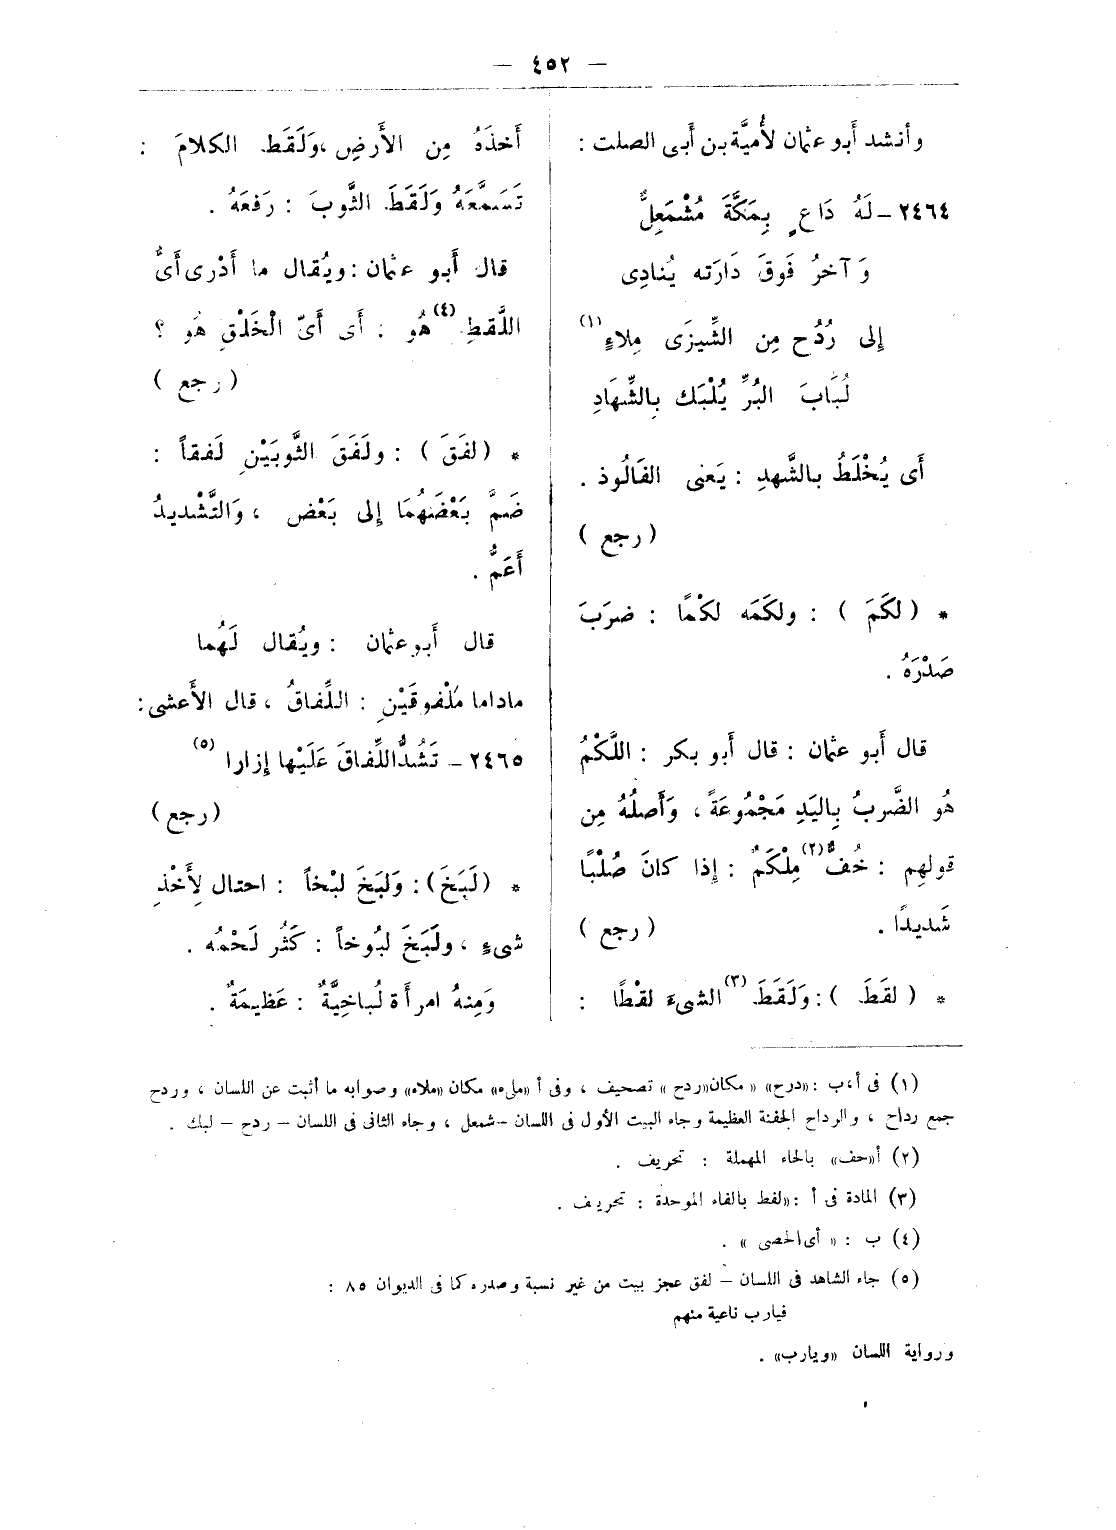 — ٤٥٢ —
وأنشد أبو عثمان لأُميَّة بن أبى الصلت :
٢٤٦٤ – لَهُ دَاعٍ بِمَكَّةَ مُشْمَعِلٌّ
وَآخرُ فَوقَ دَارَته يُنادِى
إلى رُدُح مِن الشِّيزَى مِلاءٍ (١)
لُبَابَ البُرِّ يُلْبَك بِالشِّهَادِ
أَى يُخْلَطُ بالشَّهدِ : يَعنى الفَالُوذ .
( رجع )
* ( لكَمَ ) : ولكَمَه لكْمًا : ضرَبَ
صَدْرَهُ .
قال أَبو عثمان : قال أَبو بكر : اللَّكْمُ
هُو الضَّربُ بِاليَدِ مَجْمُوعَةً ، وَأَصلُهُ مِن
قولهِم : خُفٌّ (٢) مِلْكَمٌ : إذا كانَ صُلْبًا
شَديدًا . ( رجع )
* ( لقَطَ ) : وَلَقَطَ (٣) الشىءَ لقْطًا :
أَخذَهُ مِن الأَرضِ ، وَلَقَط الكلامَ :
تَسَمَّعَهُ وَلَقَطَ الثَّوبَ : رَفعَهُ .
قال أَبو عثمان : ويُقال ما أَدْرى أَىُّ
اللَّقطِ (٤) هُو : أَى أَىّ الْخَلْقِ هُو ؟
( رجع )
* ( لفَقَ ) : ولَفَقَ الثَّوبَيْنِ لَفقاً :
ضَمَّ بَعْضَهُمَا إلى بَعْض ، وَالتَّشْديدُ
أَعَمُّ .
قال أَبو عثمان : ويُقال لَهُما
ماداما مَلْفوقَيْنِ : اللِّفاقُ ، قال الأَعشى :
٢٤٦٥ – تَشُدُّ اللِّفاقَ عَلَيْها إزارا (٥)
( رجع )
* ( لَبَخَ ) : وَلَبَخَ لبْخاً : احتال لِأَخْذِ
شىءٍ ، ولَبَخَ لبُوخاً : كَثُر لَحْمُه .
وَمِنهُ امرأَة لُباخِيَّةٌ : عَظيمَةٌ .
(١) فى أ ، ب : «درح» مكان «ردح» تصحيف ، وفى أ «ملء» مكان «ملاء» وصوابه ما أثبت عن اللسان ، وردح
جمع رداح ، والرداح الجفنة العظيمة وجاء البيت الأول فى اللسان – شمعل ، وجاء الثانى فى اللسان – ردح – لبك .
(٢) أ «حف» بالحاء المهملة : تحريف .
(٣) المادة فى أ : «لفط بالفاء الموحدة : تحريف .
(٤) ب : « أى الحصى » .
(٥) جاء الشاهد فى اللسان – لفق عجز بيت من غير نسبة وصدره كما فى الديوان ٨٥ :
فيارب ناعية منهم
ورواية اللسان «ويارب» .